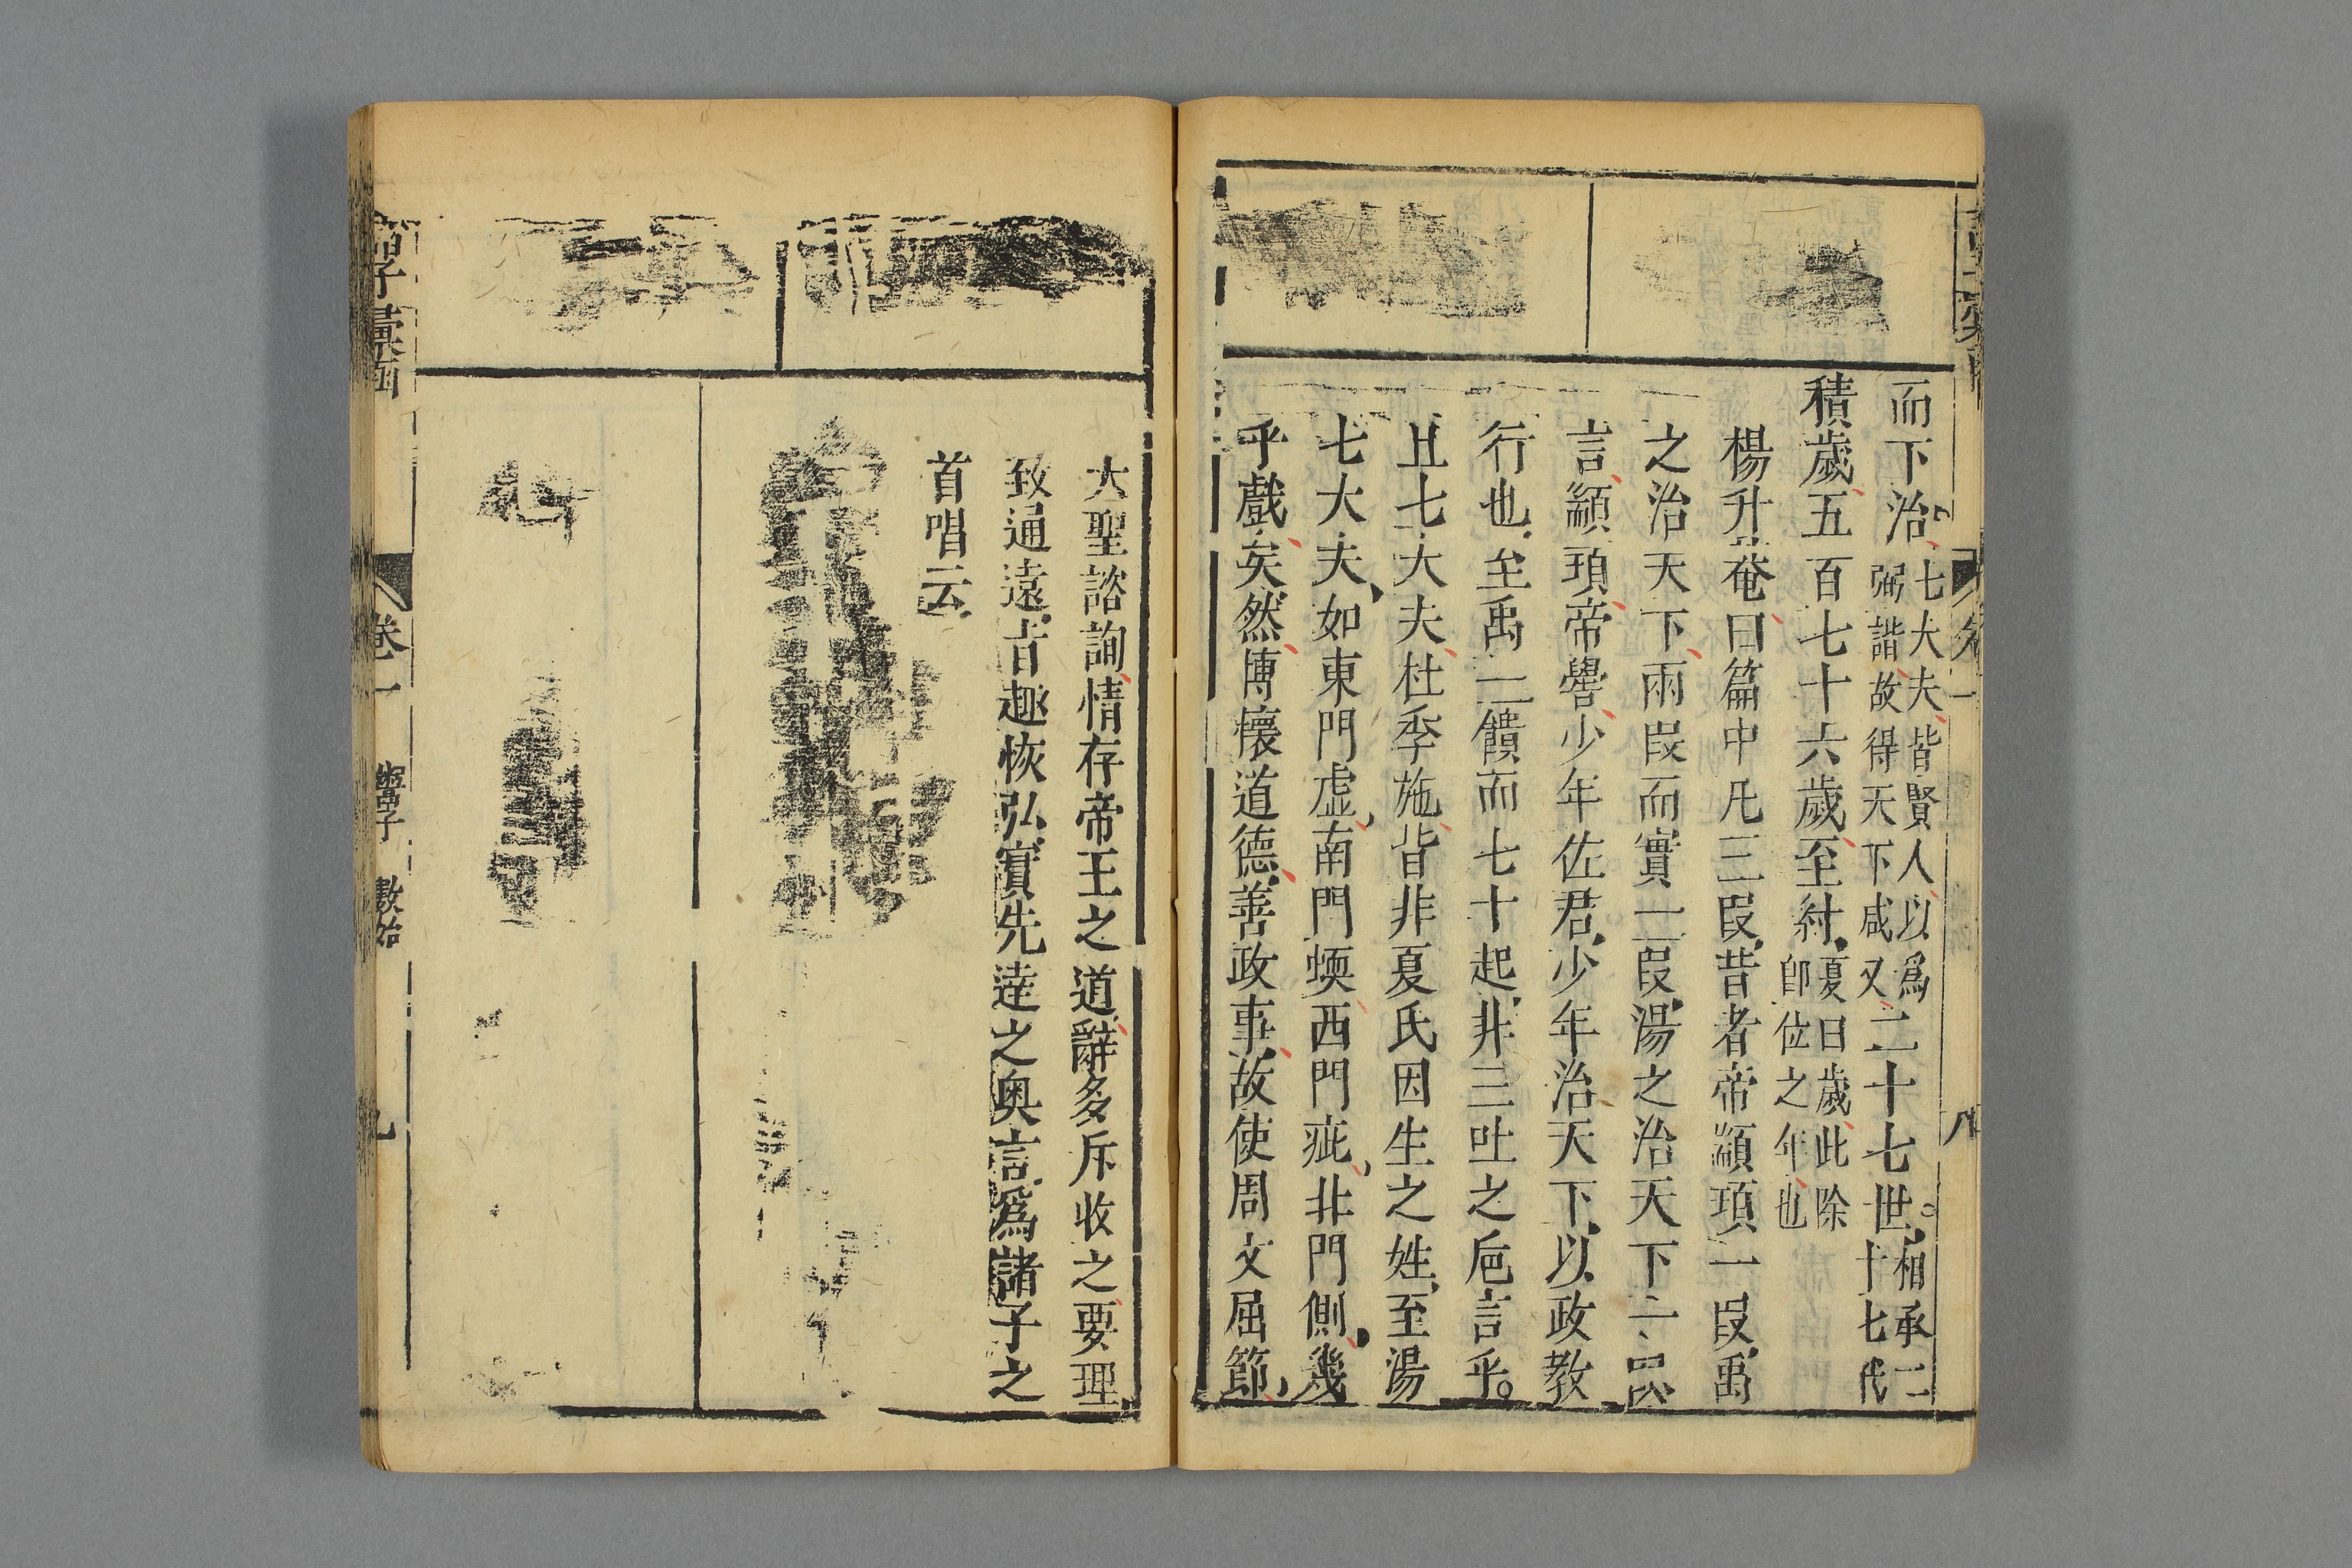 而下治七大夫皆賢人以爲
弼諧故得天下咸乂二十七世相承二
十七代
積歲五百七十六歲至紂夏曰歲此除
即位之年也
楊升菴曰篇中凡三段昔者帝顓頊一段禹
之治天下兩段而實一段湯之治天下二段
言顓頊帝嚳少年佐君少年治天下以政教
行也至禹一饋而七十起非三吐之巵言乎
且七大夫杜季施皆非夏氏因生之姓至湯
七大夫如東門虛南門蝡西門疵非門側幾
乎戲矣然博懷道德善政事故使周文屈節
八
大聖諮詢情存帝王之道辭多斥收之要理
致通遠旨趣恢弘實先達之奥言爲諸子之
首唱云
諸子彙函
卷一
鬻子
數始
九